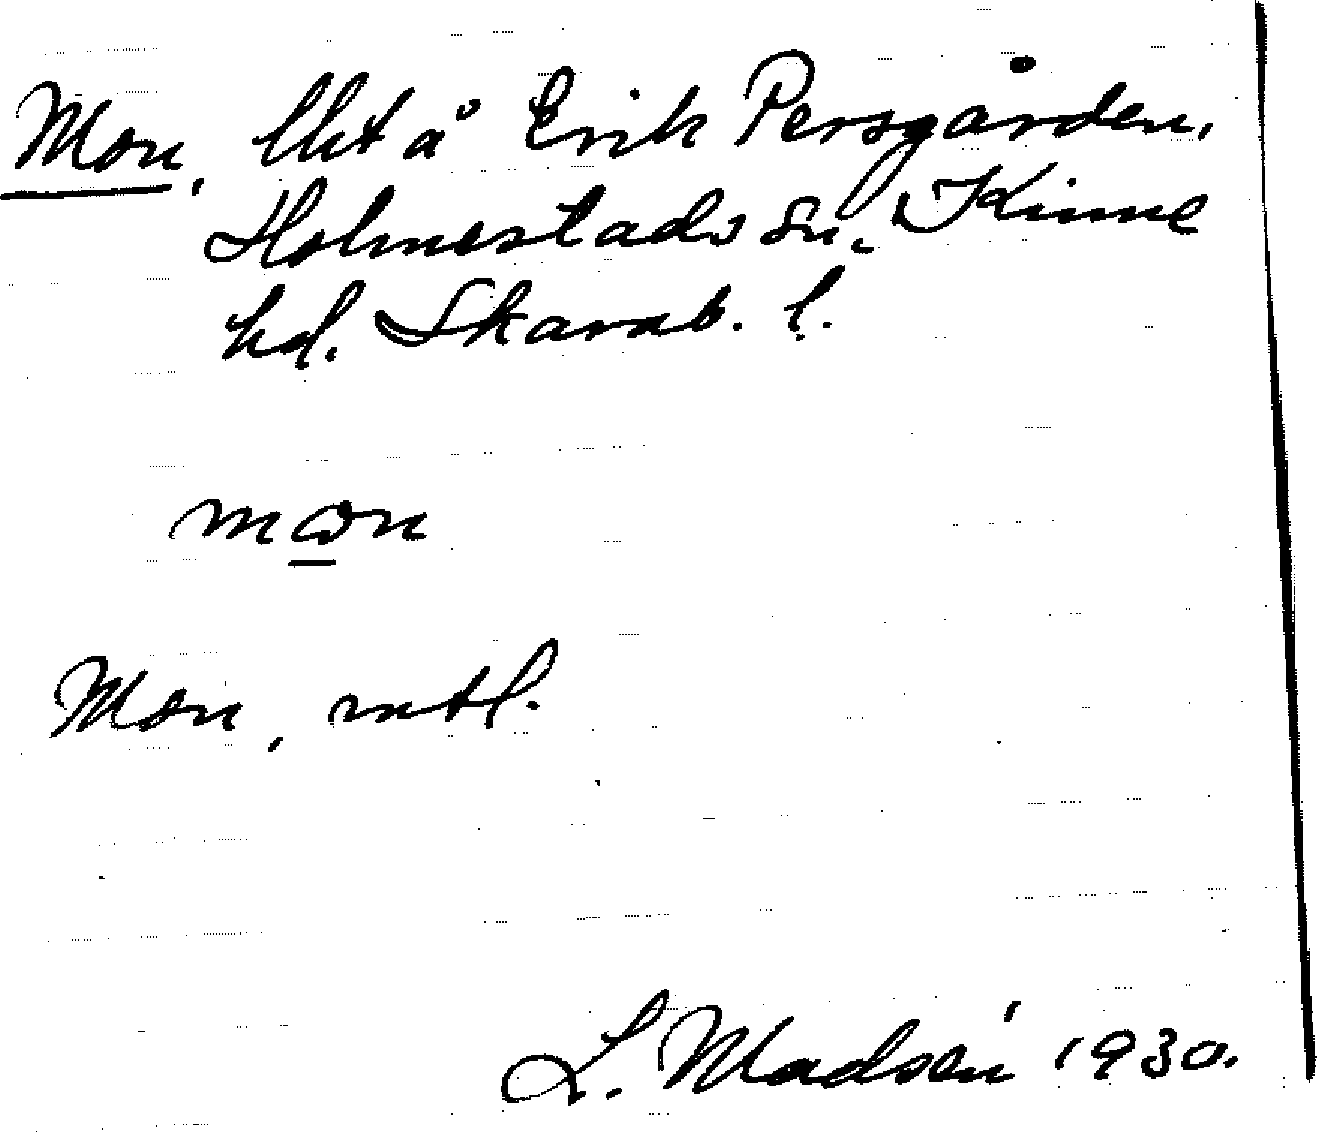 Mon, lht å Erik Persgården,
Holmestads sn, Kinne
hd. Skarab. l.
mɷn
Mon, mtl.
L. Madsén 1930.